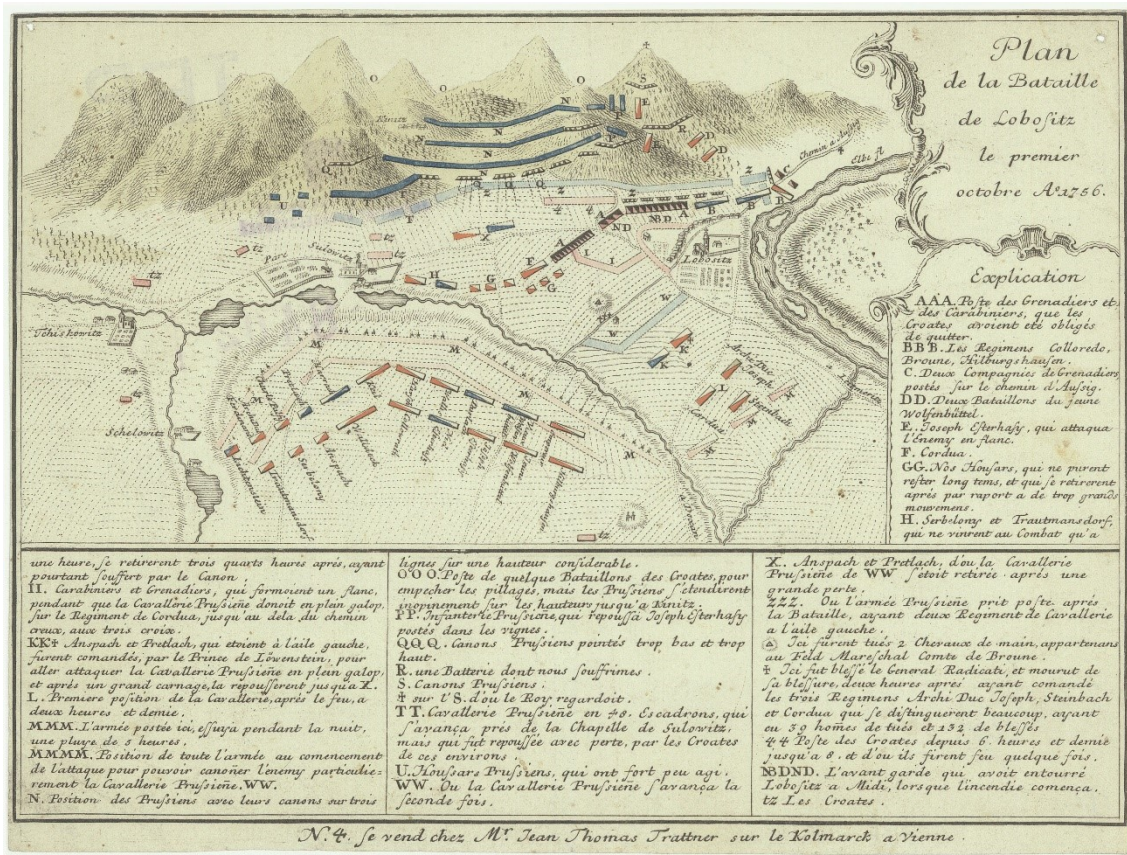 Plan
de la Bataille
de Lobositz
le premier
octobre Aº1756.
Explication
AAA. Poste des Grenadiers et
des Carabiniers, que les
Croates avoient eté obligés
de quitter.
BBB. Les Regimens Colloredo,
Broune, Hilburgshausen.
C. Deux Compagnies de Grenadiers
postés sur le chemin d'Aussig.
DD. Deux Bataillons du jeune
Wolfenbüttel.
E. Joseph Esterhasy, qui attaqua
l'Enemy en flanc.
F. Cordua.
GG. Nos Housars, qui ne purent
rester long tems, et qui se retirerent
aprés par raport a de trop grands
mouvemens.
H. Serbelony et Trautmansdorf,
qui ne vinrent au Combat qu'a
une heure, se retirerent trois quarts heurés aprés, ayant
pourtant souffert par le Canon.
II. Carabiniers et Grenadiers, qui formoient un flanc,
pendant que la Cavallerie Prussieñe donoit en plein galop,
sur le Regiment de Cordua, jusqu'au dela du chemin
creux, aux trois croix.
KK‡ Anspach et Pretlach, qui etoient à l'aile gauche,
furent comandés, par le Prince de Löwenstein, pour
aller attaquer la Cavallerie Prussieñe en plein galop,
et aprés un grand carnage, la repousserent jusqu'a K.
L. Premiere position de la Cavallerie, aprés le feu, a
deux heures et demie.
MMM. L'armée postée ici, essuya pendant la nuit,
une pluye de 5 heures.
MMMM. Position de toute l'armée au comencement
de l'attaque pour pouvoir canoñer l'enemy particulie-
rement la Cavallerie Prussieñe. WW.
N. Position des Prussiens avec leurs canons sur trois
lignes sur une hauteur considerable.
OOO. Poste de quelque Bataillons des Croates, pour
empecher les pillages, mais les Prussiens s'étendirent
inopinement sur les hauteurs jusqu'a Kinitz.
PP. Infanterie Prussieñe, qui repoussa Joseph Esterhasy
postés dans les vignes.
QQQ. Canons Prussiens pointés trop bas et trop
haut.
R. une Batterie dont nous souffrimes.
S. Canons Prussiens.
‡ sur l'S. d'ou le Roy regardoit.
TT. Cavallerie Prussieñe en 48. Escadrons, qui
s'avança prés de la Chapelle de Sulowitz,
mais qui fut repoussée avec perte, par les Croates
de ces environs.
U. Houssars Prussiens, qui ont fort peu agi.
WW. Ou la Cavallerie Prussieñe s'avança la
seconde fois.
X. Anspach et Pretlach, d'ou la Cavallerie
Prussieñe de WW s'étoit retirée aprés une
grande perte.
ZZZ. Ou l'armée Prussieñe prit poste aprés
la Bataille, ayant deux Regiment de Cavallerie
a l'aile gauche.
Ici furent tués 2 Chevaux de main, appartenans
au Feld Mareschal Comte de Broune.
‡ Ici fut blessé le General Radicati, et mourut de
sa blessure, deux heures aprés ayant comandé
les trois Regimens Archi Duc Joseph, Steinbach
et Cordua qui se distinguerent beaucoup, ayant
eu 39 homes de tués et 232 de blessés
44 Poste des Croates depuis 6 heures et demie
jusqu'a 8, et d'ou ils firent feu quelque fois.
NBDND. L'avant garde qui avoit entourré
Lobositz a Midi, lorsque l'incendie comença.
tz Les Croates.
Kinitz
Chemin a Aussig
Elbe fl
Sulowitz
Parc
Lobositz
Tchiskowitz
Schelowitz
Archi Duc
Joseph
Steinbach
Cordua
Anspach
Serbelony
Trautmansdorf
N.4. se vend chez Mr. Jean Thomas Trattner sur le Kolmarck a Vienne.